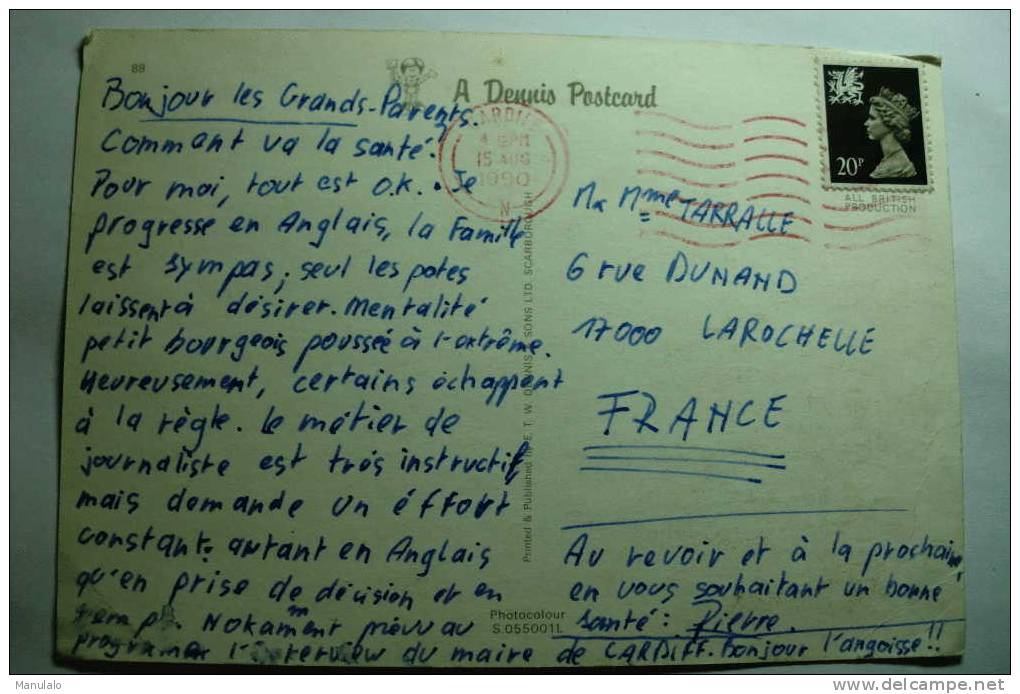 88
A Dennis Postcard
Bonjour les Grands-Parents.
Commant va la santé?
Pour moi, tout est O.K. Je
progresse en Anglais, la Famille
est sympas, seul les potes
laissent à désirer. Mentalité
petit bourgeois poussée à l'extrême.
Heureusement, certains échappent
à la règle. Le métier de
journaliste est très instructif
mais demande un éffort
constant. autant en Anglais
qu'en prise de décision et en
temps. Notamment prévu au
programme l'interview du maire de CARDIFF. Bonjour l'angoisse!!
CARDIFF
15 AUG
1990
N
20P
ALL BRITISH
PRODUCTION
Mme TARRALLE
6 rue DUNAND
17000 LAROCHELLE
FRANCE
Au revoir et à la prochaine
en vous souhaitant un bonne
santé: Pierre.
Printed & Published by E. T. W. DENNIS & SONS LTD. SCARBOROUGH
Photocolour
S.055001L
Manulalo
delcampe.net